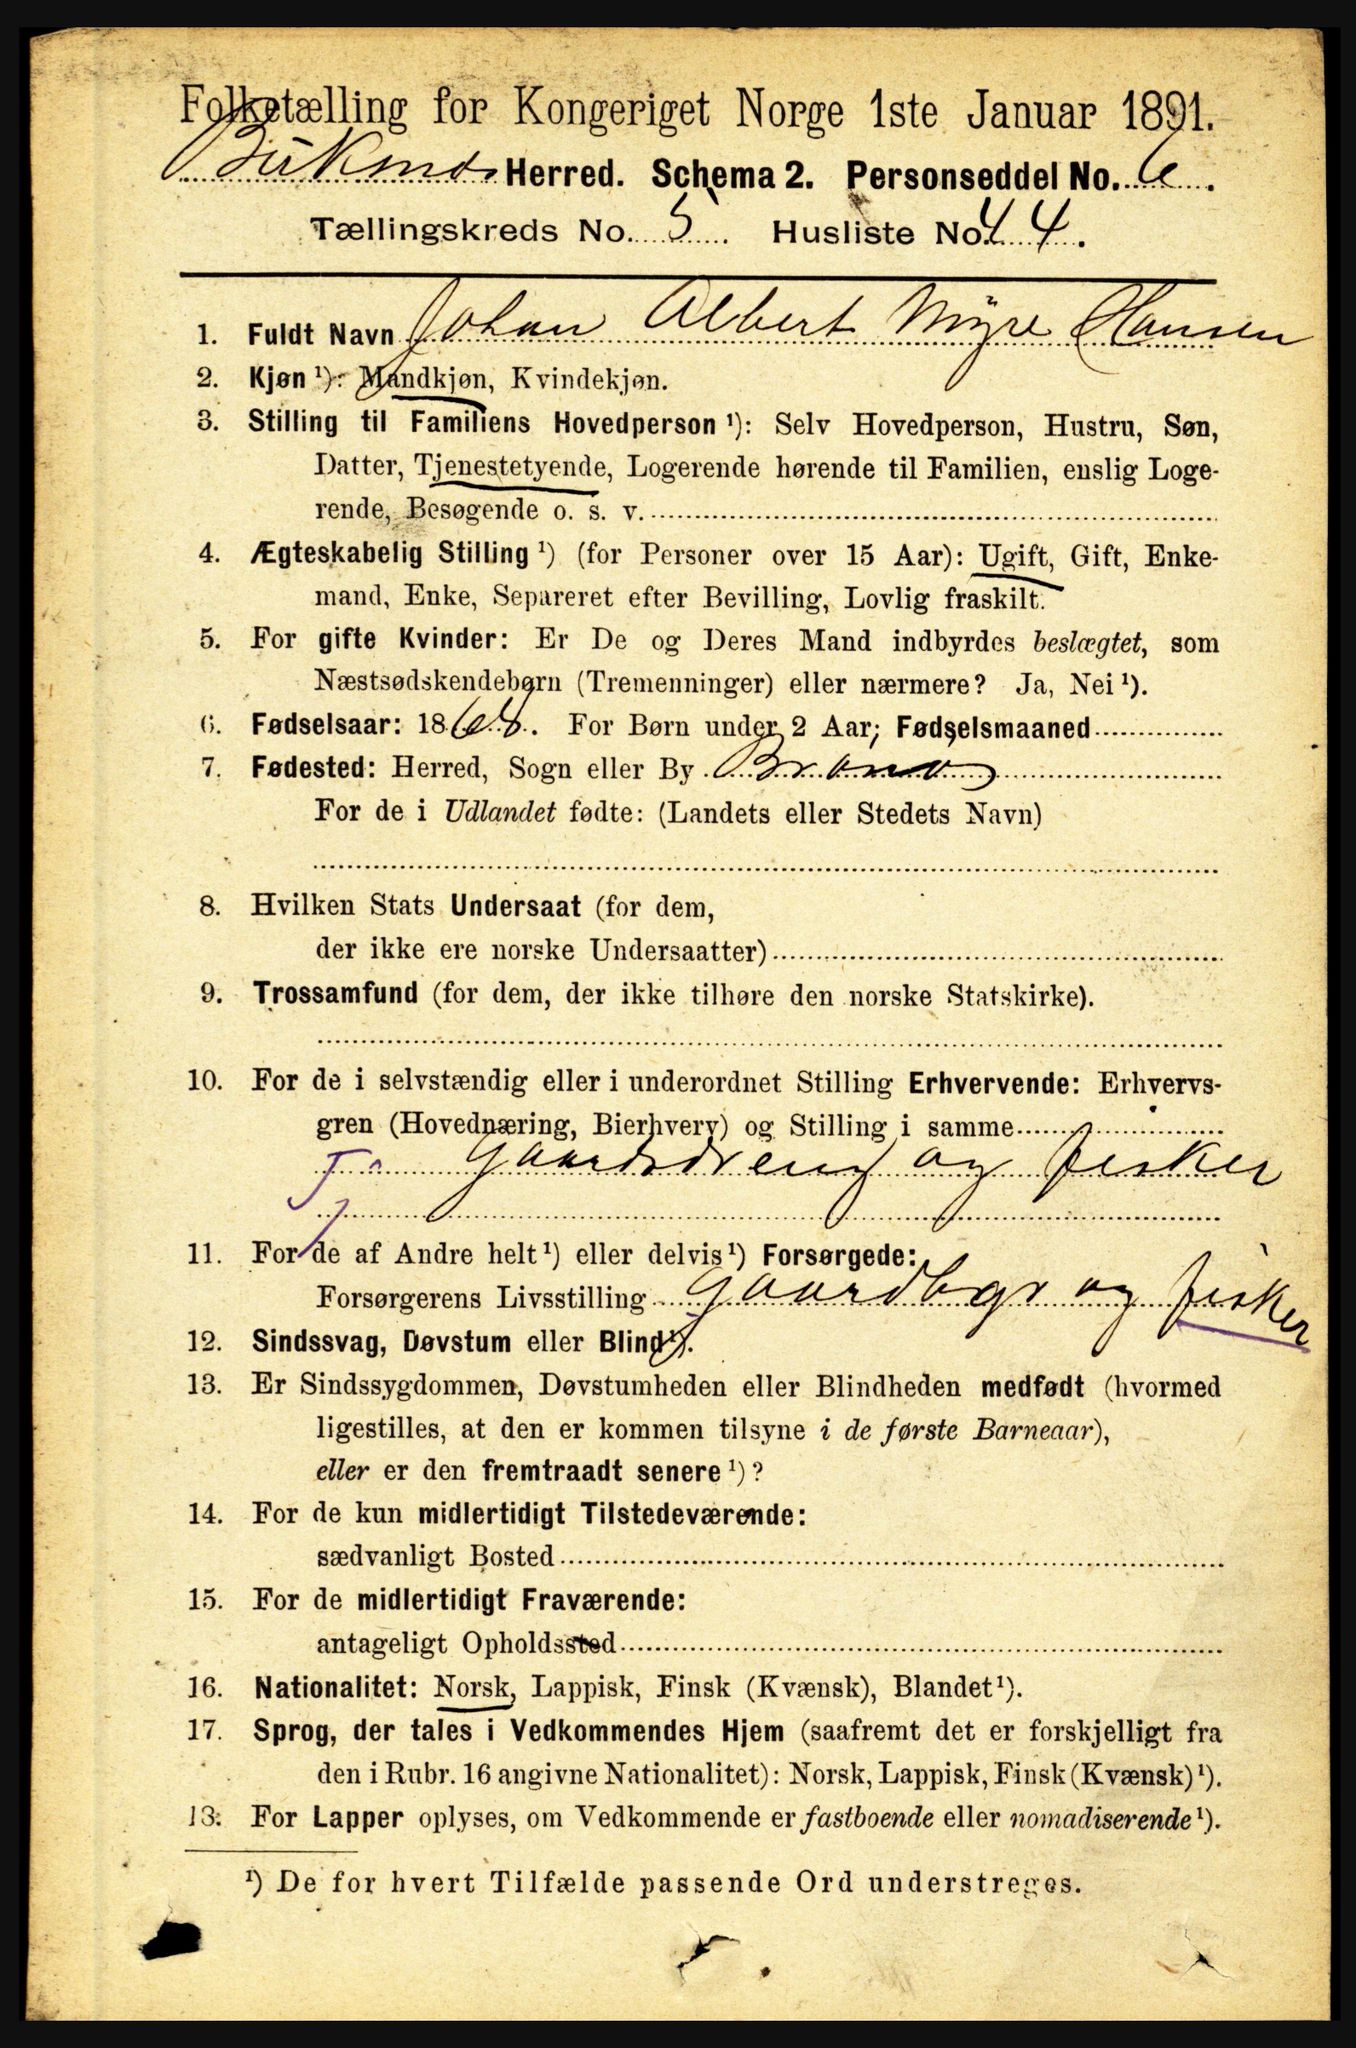 Folketælling for Kongeriget Norge 1ste Januar 1891.
Buksnes Herred. Schema 2. Personseddel No. 6.
Tællingskreds No. 5. Husliste No. 44.
1. Fuldt Navn Johan Albert Myre Hansen
2. Kjøn ¹): Mandkjøn, Kvindekjøn.
3. Stilling til Familiens Hovedperson ¹): Selv Hovedperson, Hustru, Søn,
Datter, Tjenestetyende, Logerende hørende til Familien, enslig Loge-
rende, Besøgende o. s. v.
4. Ægteskabelig Stilling ¹) (for Personer over 15 Aar): Ugift, Gift, Enke-
mand, Enke, Separeret efter Bevilling, Lovlig fraskilt.
5. For gifte Kvinder: Er De og Deres Mand indbyrdes beslægtet, som
Næstsødskendebørn (Tremenninger) eller nærmere? Ja, Nei ¹).
6. Fødselsaar: 1868. For Børn under 2 Aar; Fødselsmaaned
7. Fødested: Herred, Sogn eller By Brønø
For de i Udlandet fødte: (Landets eller Stedets Navn)
8. Hvilken Stats Undersaat (for dem,
der ikke ere norske Undersaatter)
9. Trossamfund (for dem, der ikke tilhøre den norske Statskirke).
10. For de i selvstændig eller i underordnet Stilling Erhvervende: Erhvervs-
gren (Hovednæring, Bierhverv) og Stilling i samme
Tj Gaardsdreng og fisker
11. For de af Andre helt ¹) eller delvis ¹) Forsørgede:
Forsørgerens Livsstilling Gaardbgr og fisker
12. Sindssvag, Døvstum eller Blind ¹).
13. Er Sindssygdommen, Døvstumheden eller Blindheden medfødt (hvormed
ligestilles, at den er kommen tilsyne i de første Barneaar),
eller er den fremtraadt senere ¹)?
14. For de kun midlertidigt Tilstedeværende:
sædvanligt Bosted
15. For de midlertidigt Fraværende:
antageligt Opholdssted
16. Nationalitet: Norsk, Lappisk, Finsk (Kvænsk), Blandet ¹).
17. Sprog, der tales i Vedkommendes Hjem (saafremt det er forskjelligt fra
den i Rubr. 16 angivne Nationalitet): Norsk, Lappisk, Finsk (Kvænsk) ¹).
13. For Lapper oplyses, om Vedkommende er fastboende eller nomadiserende ¹).
¹) De for hvert Tilfælde passende Ord understreges.